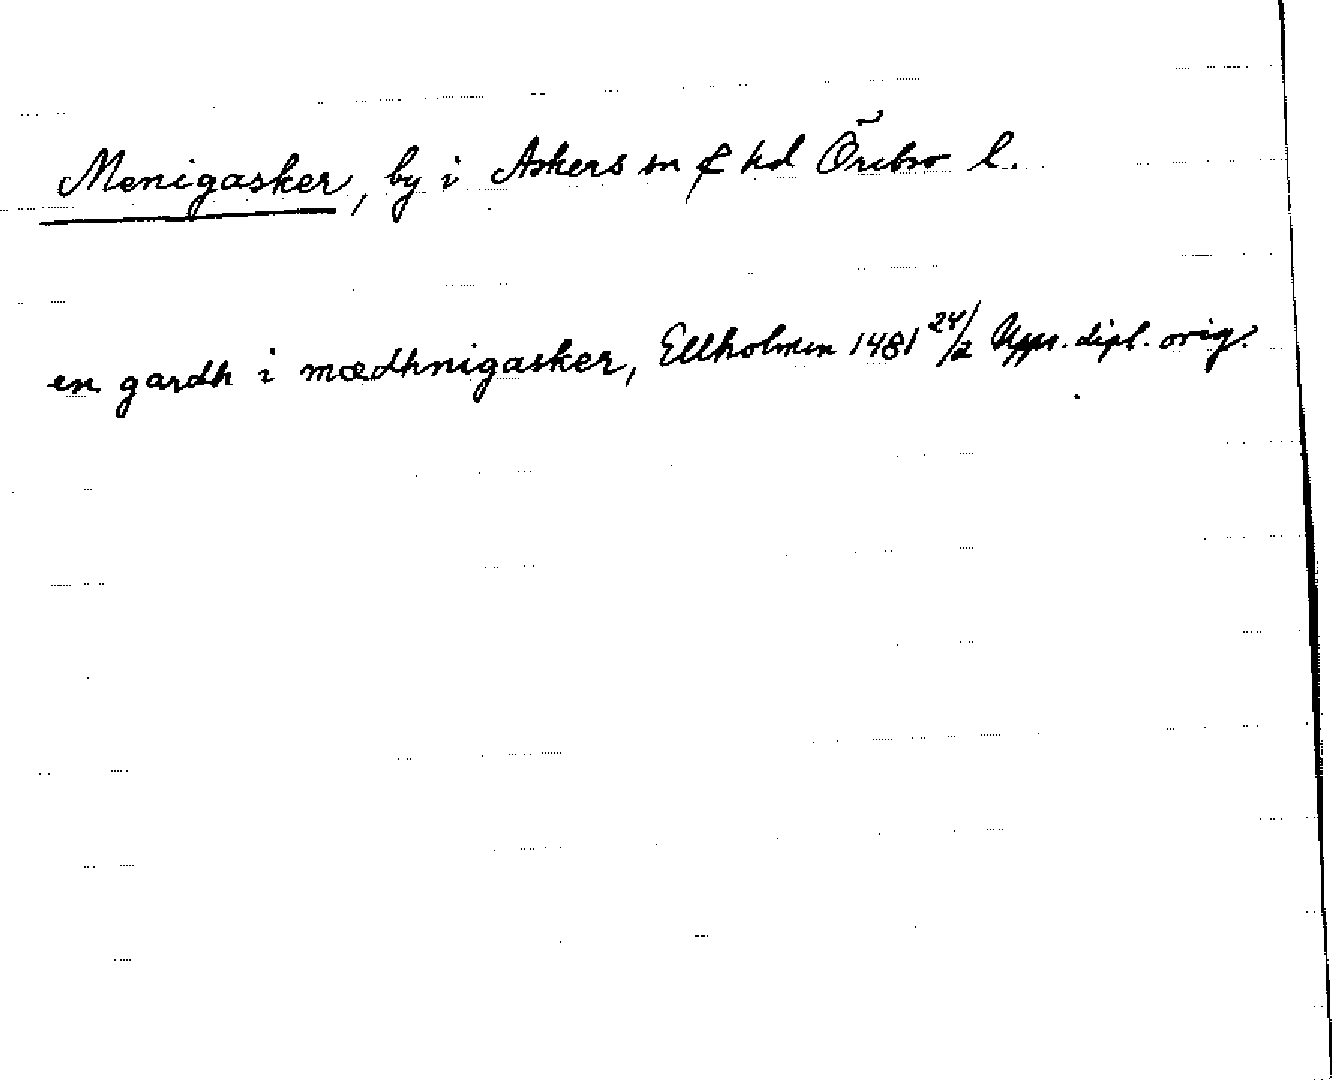 Menigasker, by i Askers sn & hd Örebro l.
en gardh i mædhnigasker, Ellholmen 1481 24/2 Upps. dipl. orig.